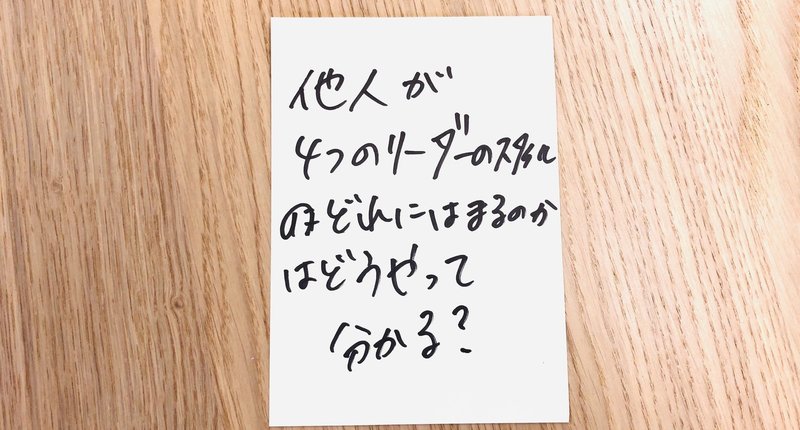 他人が
4つのリーダーのスタイル
のどれにはまるのか
はどうやって
分かる?